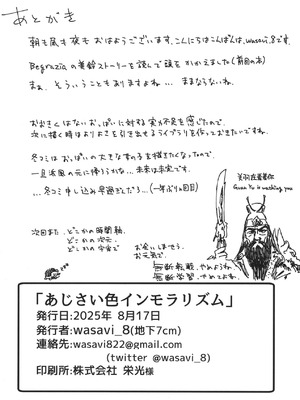 あとがき
朝も昼も夜もおはようございます、こんにちはこんばんは、wasavi_8です。
Begraziaの普餅ストーリーを読んで頭をかかえました(前回の本)
まぁ、そういうこともありますよね… ままならないね。
おおきくはないおっぱいに対する実力不足を感じたので、
次に描く時はよりよさを引き出せるライブラリを作っておきたいですね。
冬コミはおっぱいの大きな女の子を描きたくなったので、
一旦浜風の元に帰ろうかな…未来は未定です。
…冬コミ申し込み早過ぎだろ…(一年ぶり 回目)
次回また、どこかの時間軸、
どこかの次元、
どこかの宇宙で
お会いしましょう。
お元気で。
無断転載、やめようね。
無断学習、やめてよね。
美羽在看着你
Guan Yu is watching you
「あじさい色インモラリズム」
発行日:2025年 8月17日
発行者:wasavi_8(地下7cm)
連絡先:wasavi822@gmail.com
(twitter @wasavi_8)
印刷所:株式会社 栄光様